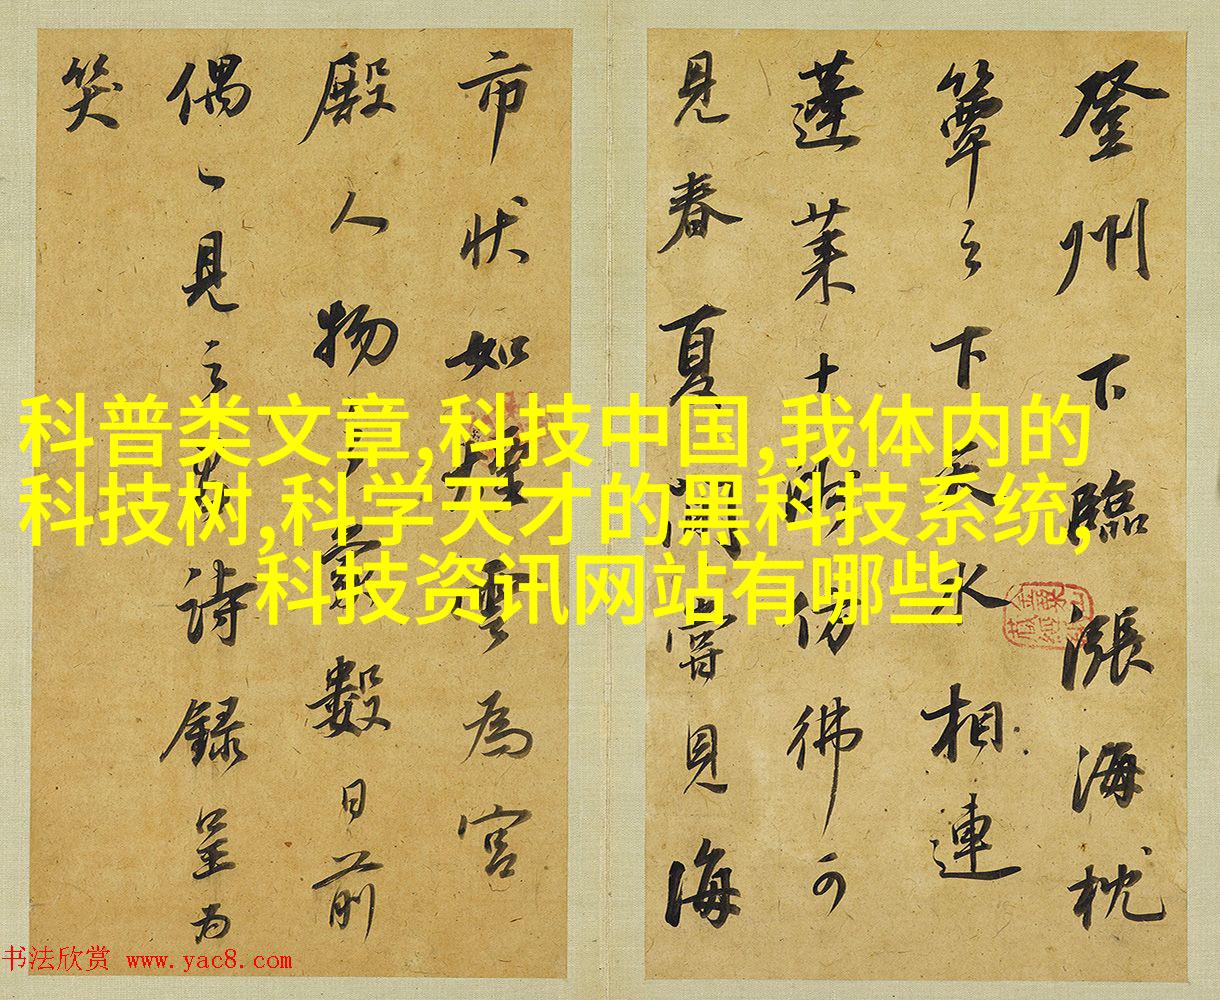 登州下臨漲海枕
簟之下天水相連
蓬萊十仿彿可
見春夏間見海
市狀如煙雲為宮
殿人物象數日前
偶見之詩錄呈為
笑
科普类文章,科技中国,我体内的
科技树,科学天才的黑科技系统,
科技资讯网站有哪些
书法欣赏 www.yac8.com